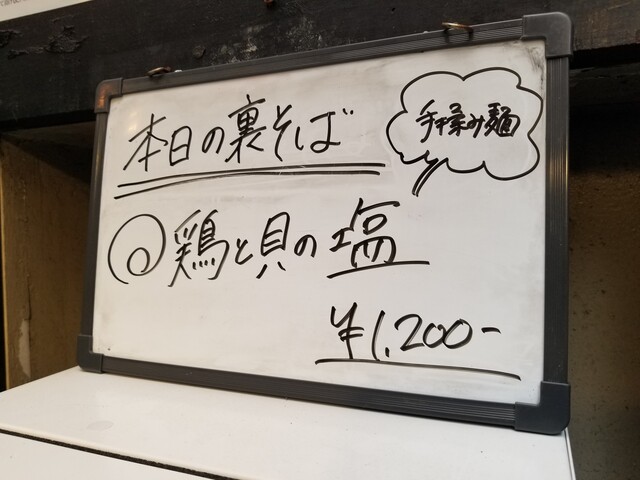 本日の裏そば
手揉み麺
鶏と貝の塩
¥1,200-